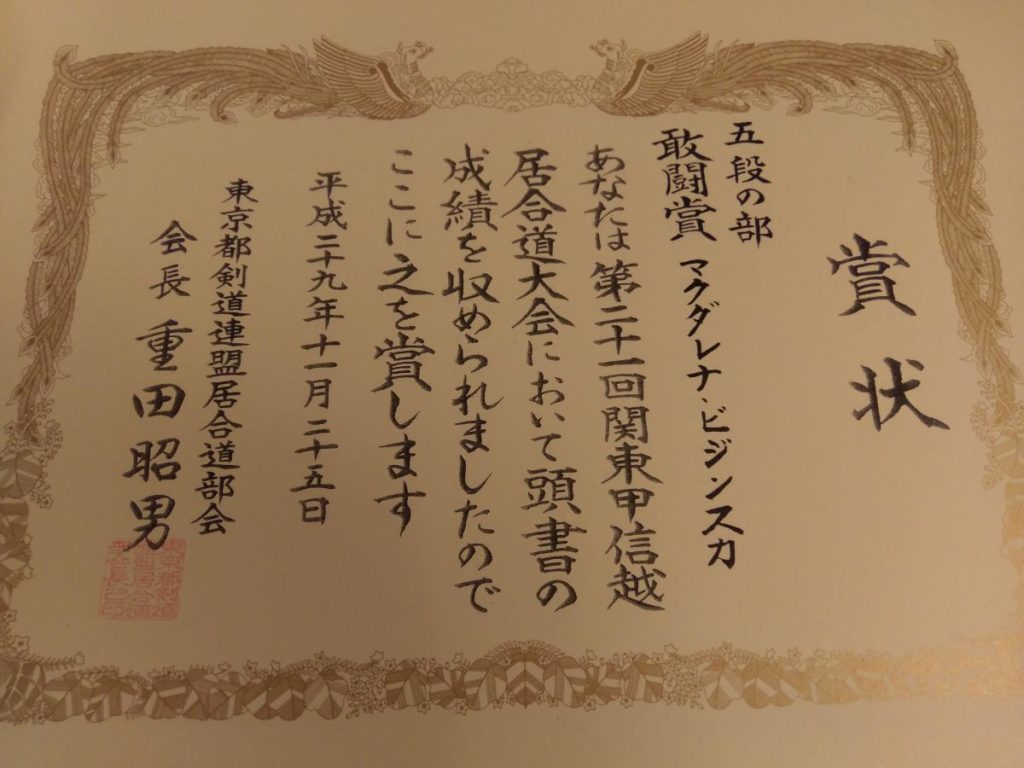 賞状
五段の部
敢闘賞 マグダレナ・ビジンスカ
あなたは第二十一回関東甲信越
居合道大会において頭書の
成績を収められましたので
ここに之を賞します
平成二十九年十一月二十五日
東京都剣道連盟居合道部会
会長 重田昭男